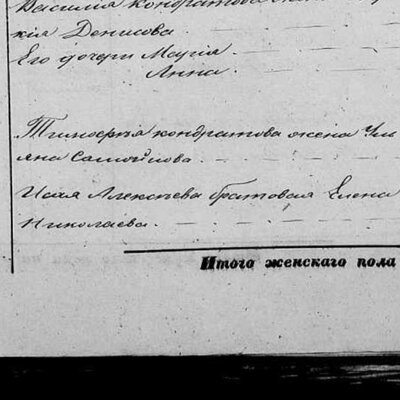 Василія Кондратова
кія Денисова
Его дочери Марія
Анна
Тимофея Кондратова жена Уль
яна Самойлова
Исая Алексѣева братовая Елена
Николаева
Итого женскаго пола